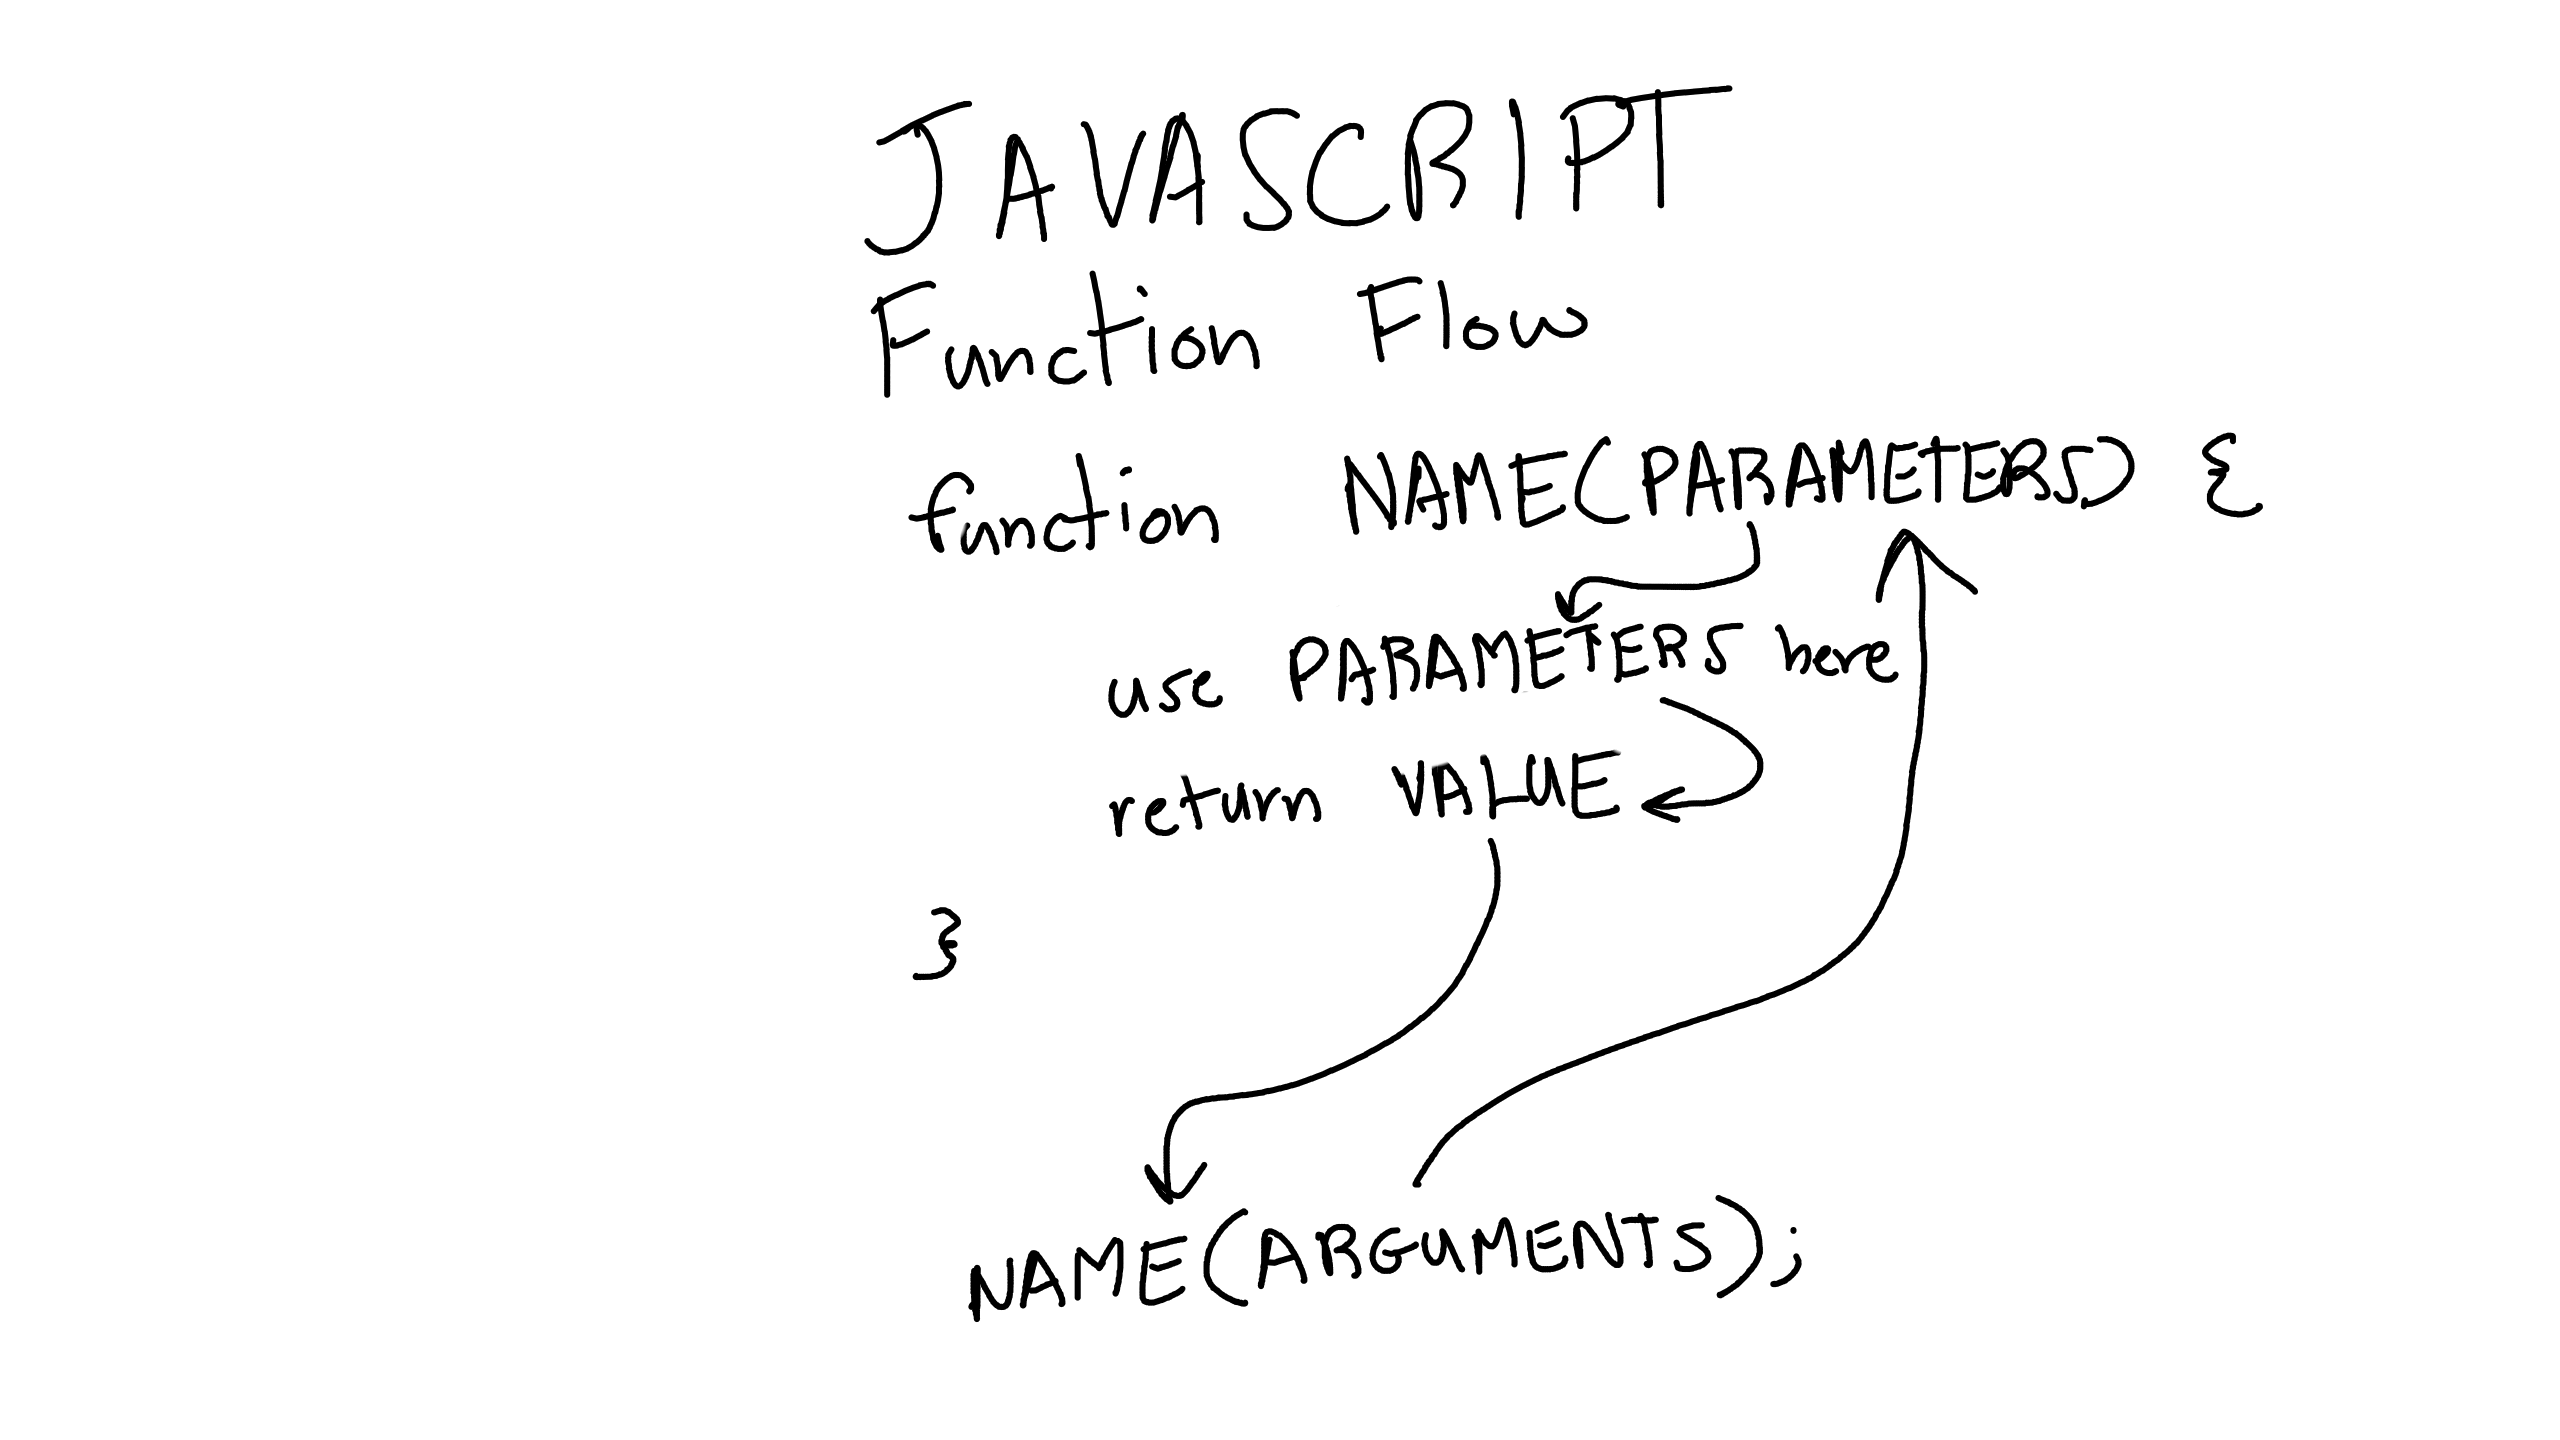 JAVASCRIPT
Function Flow
function NAME(PARAMETERS) {
use PARAMETERS here
return VALUE
}
NAME(ARGUMENTS);